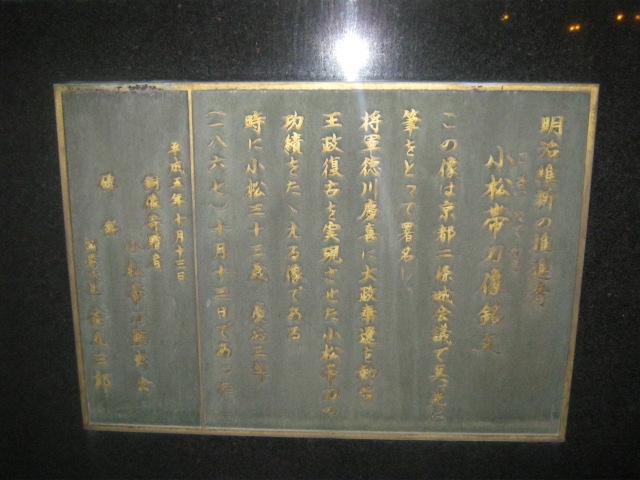 明治維新の推進者
小松帯刀像銘文
こまつたてわき
この像は京都二條城会議で真先に
筆をとって署名し
将軍徳川慶喜に大政奉還を勧告
王政復古を実現させた小松帯刀の
功績をたゝえる像である
時に小松三十三歳 慶応三年
(一八六七)十月十三日であった
平成五年十月十三日
銅像寄贈者
小松帯刀顕彰会